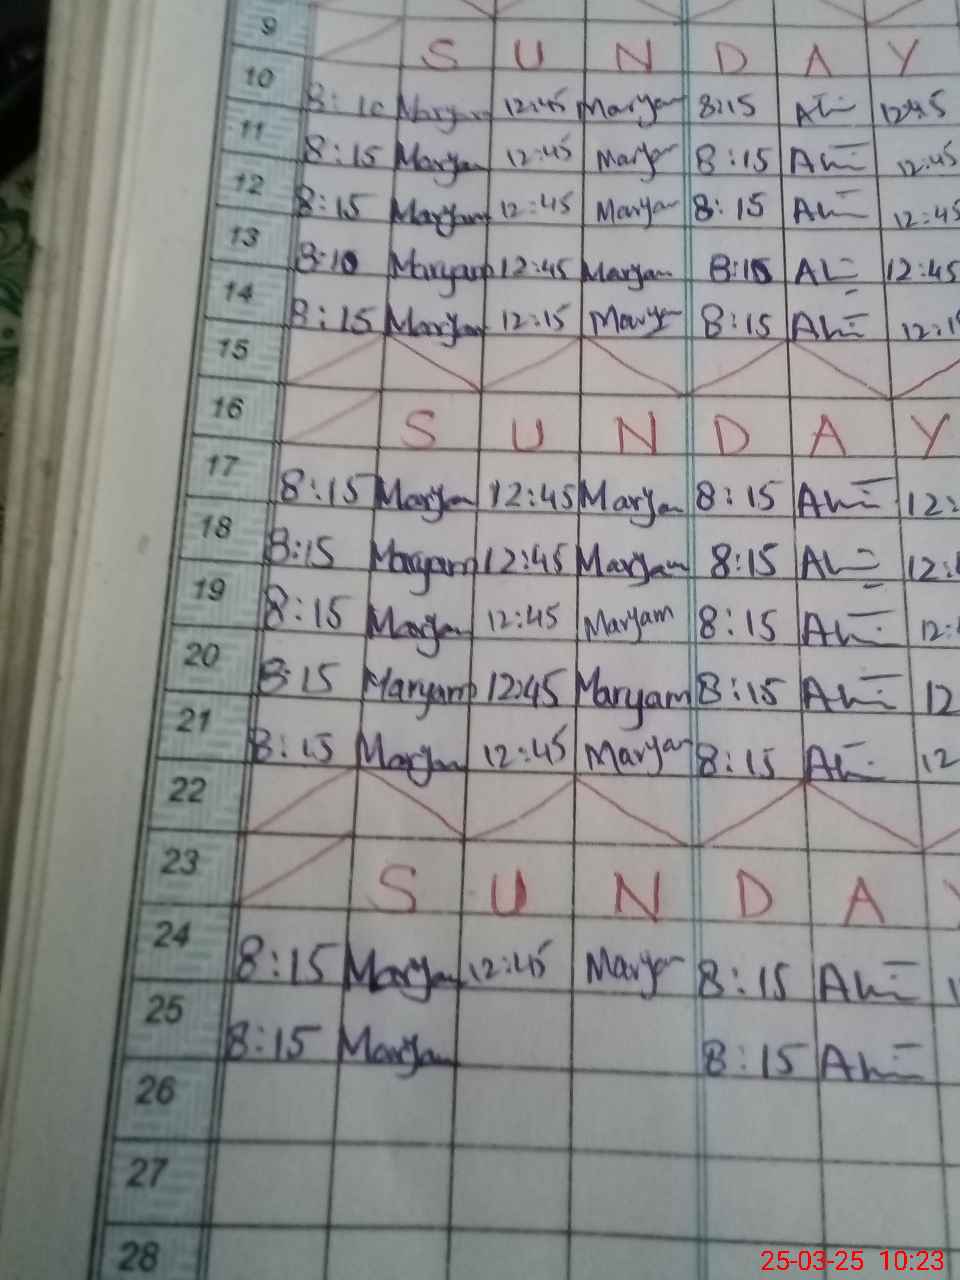 9 S U N D A Y
10 8:10 Maryam 12:45 Maryam 8:15 12:45
11 8:15 Maryam 12:45 Maryam 8:15 12:45
12 8:15 Maryam 12:45 Maryam 8:15 12:45
13 8:10 Maryam 12:45 Maryam 8:15 12:45
14 8:15 Maryam 12:15 Maryam 8:15
15
16 S U N D A Y
17 8:15 Maryam 12:45 Maryam 8:15 12:
18 8:15 Maryam 12:45 Maryam 8:15 12:
19 8:15 Maryam 12:45 Maryam 8:15 12:
20 8:15 Maryam 12:45 Maryam 8:15 12
21 8:15 Maryam 12:45 Maryam 8:15 12
22
23 S U N D A
24 8:15 Maryam 12:45 Maryam 8:15
25 8:15 Maryam 8:15
26
27
28
25-03-25 10:23